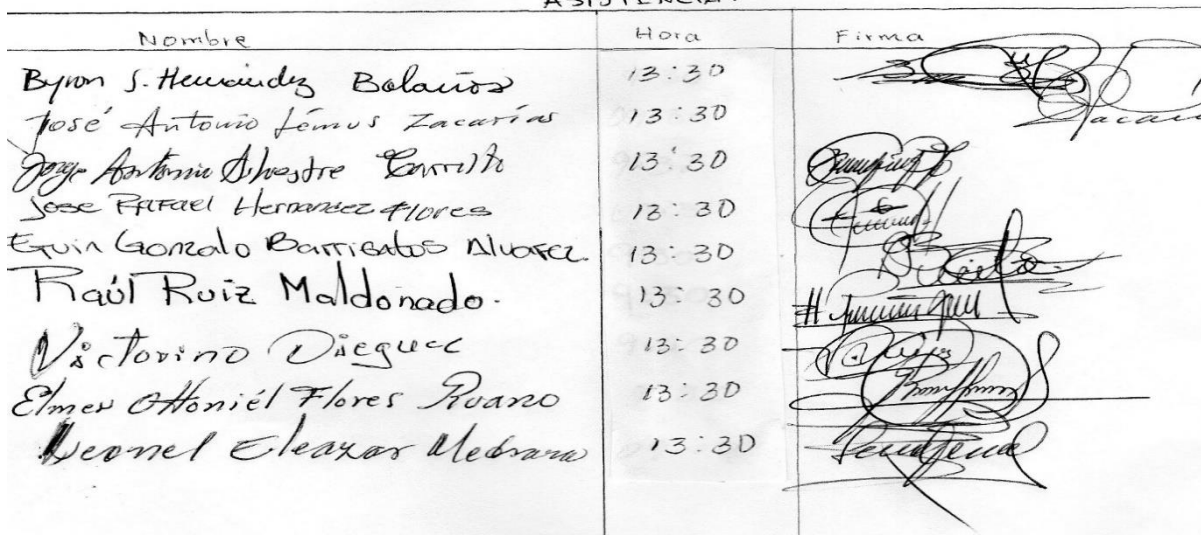 ASISTENCIA.
Nombre Hora Firma
Byron S. Hernández Bolaños 13:30
José Antonio Lémus Zacarías 13:30
Jorge Antonio Silvestre Carrillo 13:30
Jose Rafael Hernandez Flores 13:30
Gonzalo Barrientos Alvarez. 13:30
Raúl Ruiz Maldonado. 13:30
Victorino Dieguez 13:30
Elmer Ottoniél Flores Ruano 13:30
Leonel Eleazar Medrano 13:30